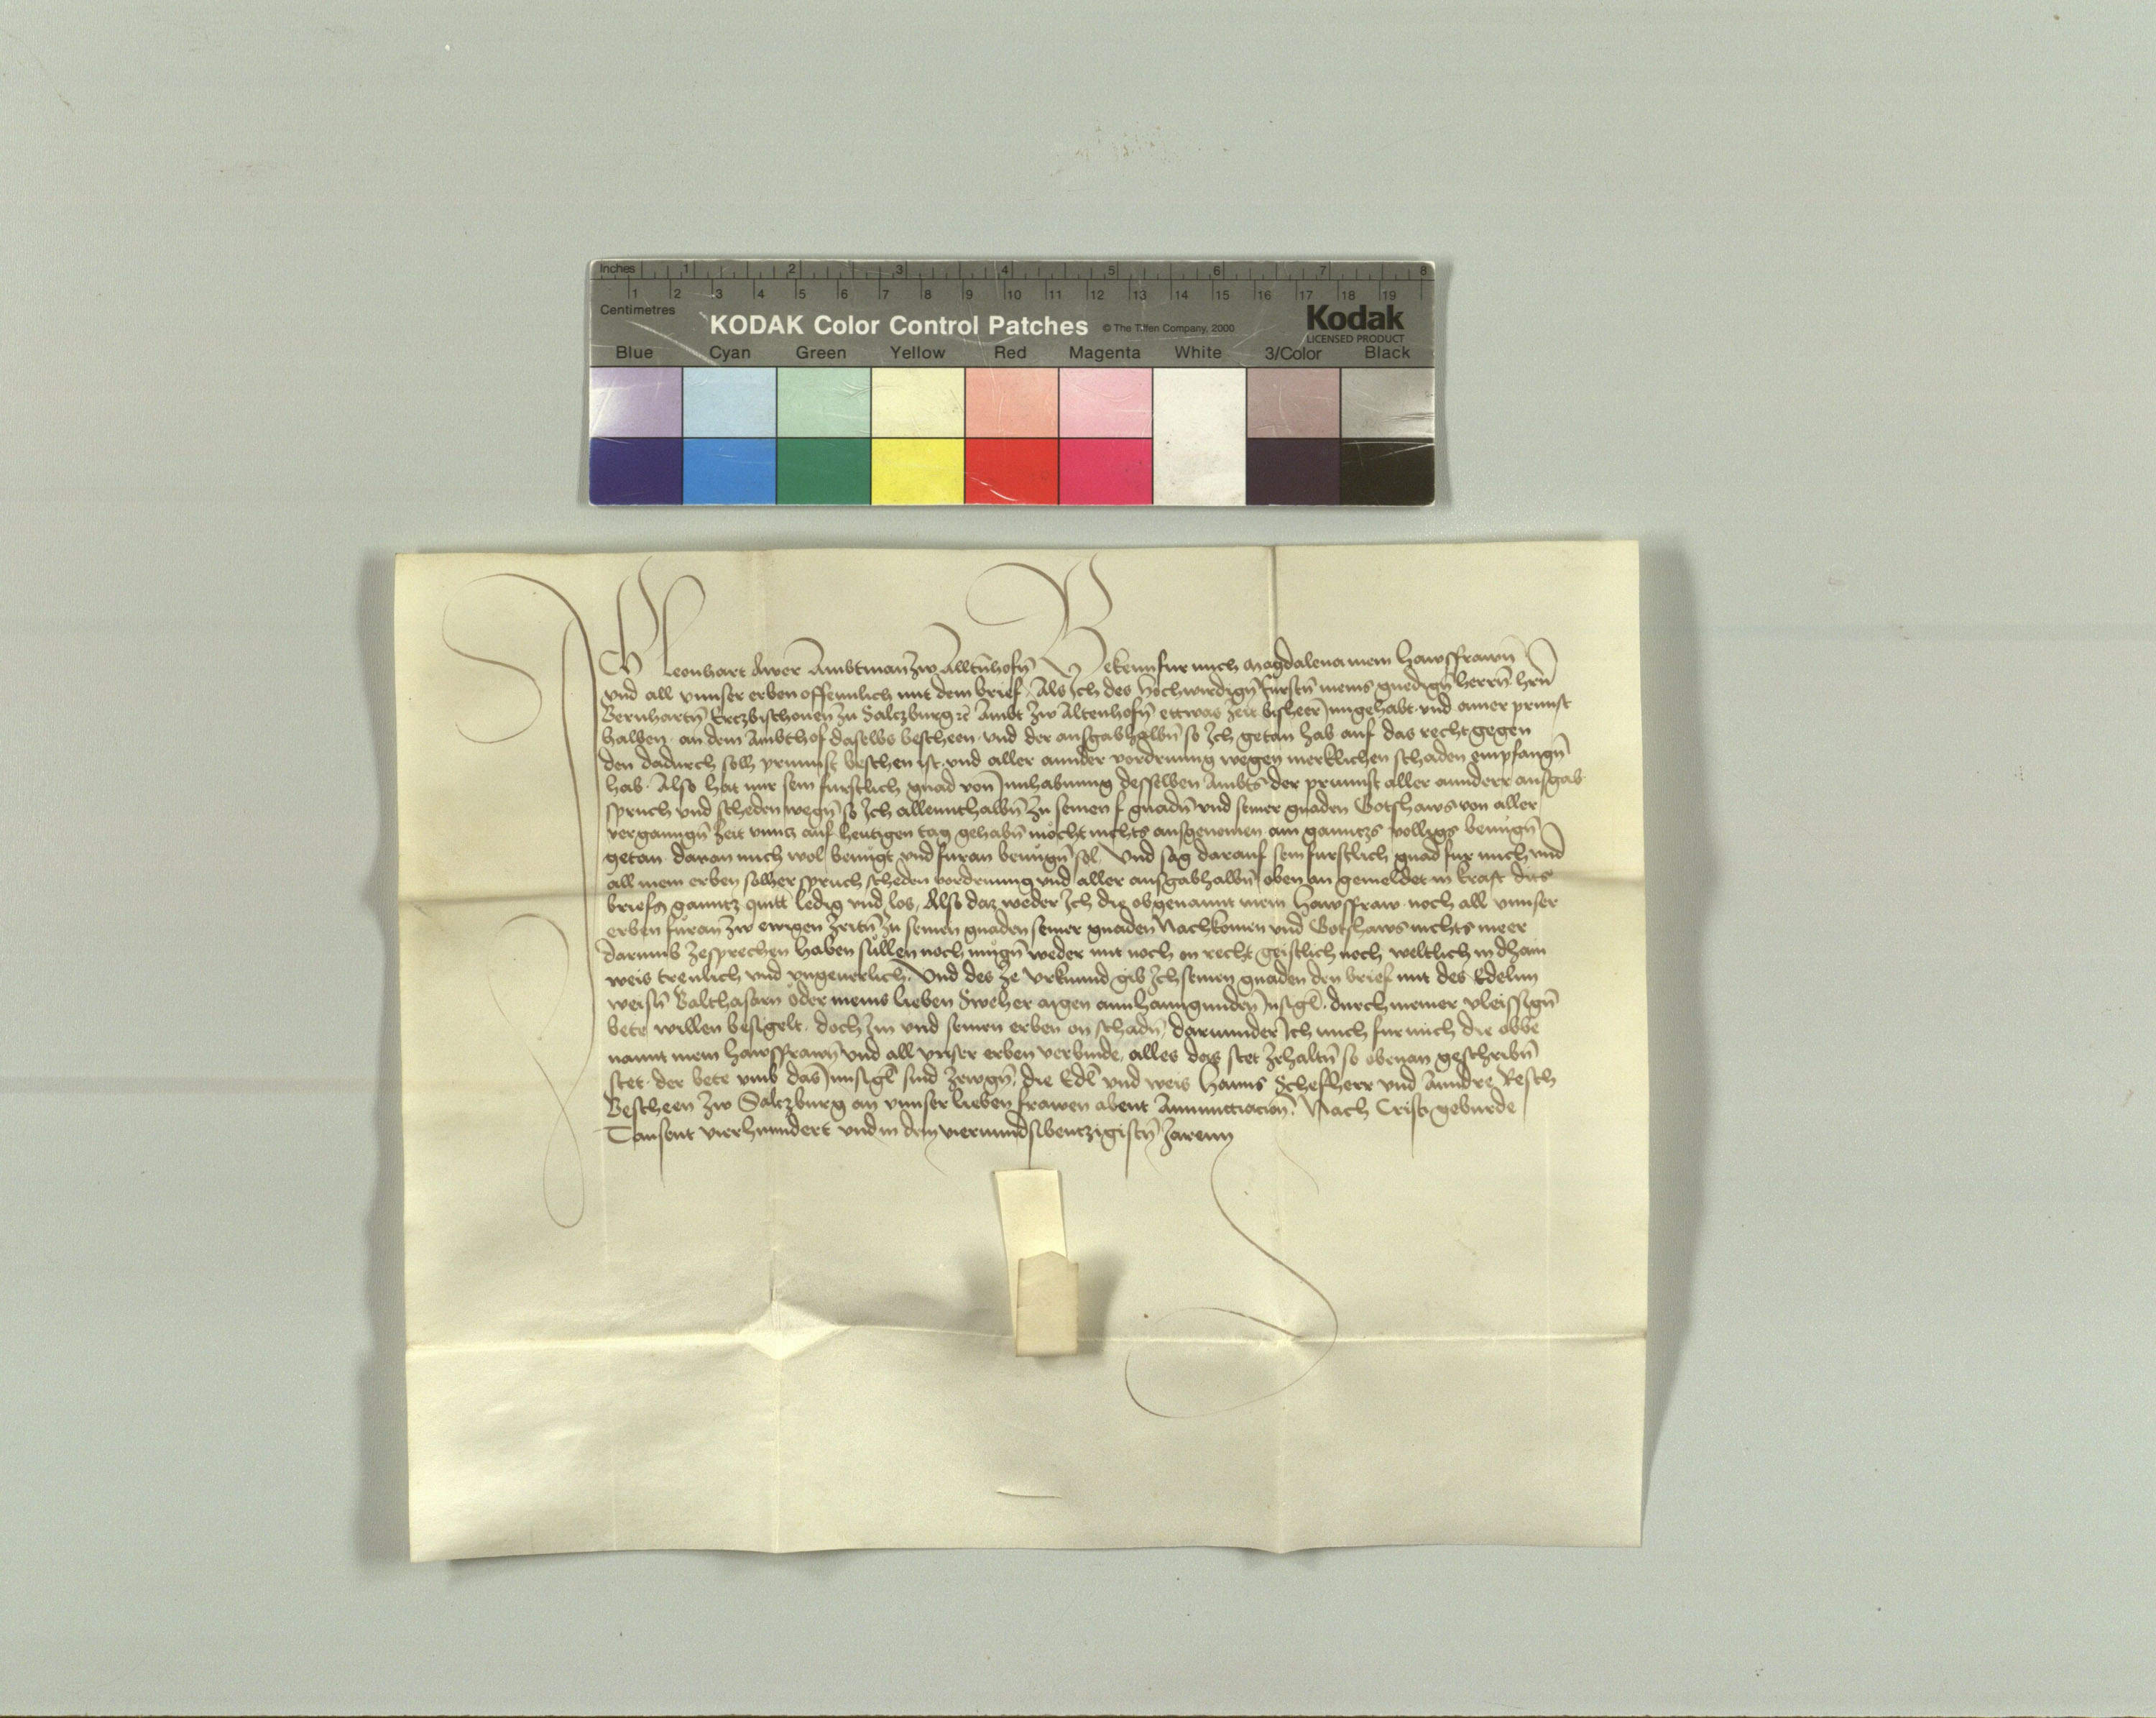 Inches 1 2 3 4 5 6 7 8
1 2 3 4 5 6 7 8 9 10 11 12 13 14 15 16 17 18 19
Centimetres
KODAK Color Control Patches © The Tiffen Company, 2000 Kodak
LICENSED PRODUCT
Blue Cyan Green Yellow Red Magenta White 3/Color Black
Ich Leonhart Awer Ambtman zw Alltnhofn̄ Bekenn fur mich Magdalena mein hawsffrawn̄
vnd all vnnser erben offennlich mit dem brief. Als Ich des Hochwirdign̄ fürstn̄ meins gnedign̄ herrn̄ hrn̄
Bernhartn̄ Erczbischouen zu Salczburg ꝛc̄ Ambt zw Altenhofn̄ ettwas zeit bisheer Inngehabt vnd ainer prunst
halben an dem Ambthof daselbs bescheen vnd der ausgabhalbn̄ so Ich getan hab auf das recht gegen
den dadurch solh prunnst beschen ist vnd aller annder vordrung wegen merklichen schaden empfangn̄
hab. Also hat mir sein furstlich gnad von Innhabung desselben Ambts der prunnst aller annderr ausgab
spruch vnd scheden wegn̄ so Ich allennthalbn̄ zu seinen f gnadn̄ vnd seiner gnaden Gotshaws von aller
vergangn̄ zeit vnntz auf heutigen tag gehabn̄ möcht nichts ausgenomen ain ganntzs volligs benügn̄
getan daran mich wol benügt vnd furan benügn̄ sol. Vnd sag darauf sein furstlich gnad fur mich vnd
all mein erben solher spruch scheden vordrung vnd aller ausgabhalbn̄ oben an gemeldet in kraft dits
briefs ganntz quitt ledig vnd los, Also daz weder Ich die obgenannt mein Hawsffraw noch all vnnser
erben füran zw ewigen zeitn̄ zu seinen gnaden seiner gnaden Nachkomen vnd Gotshaws nichts meer
darumb zesprechen haben süllen noch mügn̄ weder mit noch on recht geistlich noch weltlich in dhain
weis trewlich vnd vngeuerlich. Vnd des ze vrkund gib Ich seinen gnaden den brief mit des Edelnn
weisn̄ Balthasarn öder meins lieben Sweher aigen annhanngunden Insigl̄. durch meiner vleissign̄
bete willen besigelt. doch im vnd seinen erben on schadn̄, darunnder Ich mich fur mich die obbe
nannt mein hawsffrawn̄ vnd all vnser erben verbinde, alles das stet zehaltn̄ so obenan geschribn̄
stet. der bete vmb das Innsigl̄ sind zewgn̄, die Edl̄ vnd weis Hanns Schefherr vnd Anndre Resch
Bescheen zw Salczburg an vnnser lieben frawen abent Annunctiacion̄. Nach Cristi geburde
Tausent vierhundert vnd in dem vierundsibentzigistn̄ Jarenn